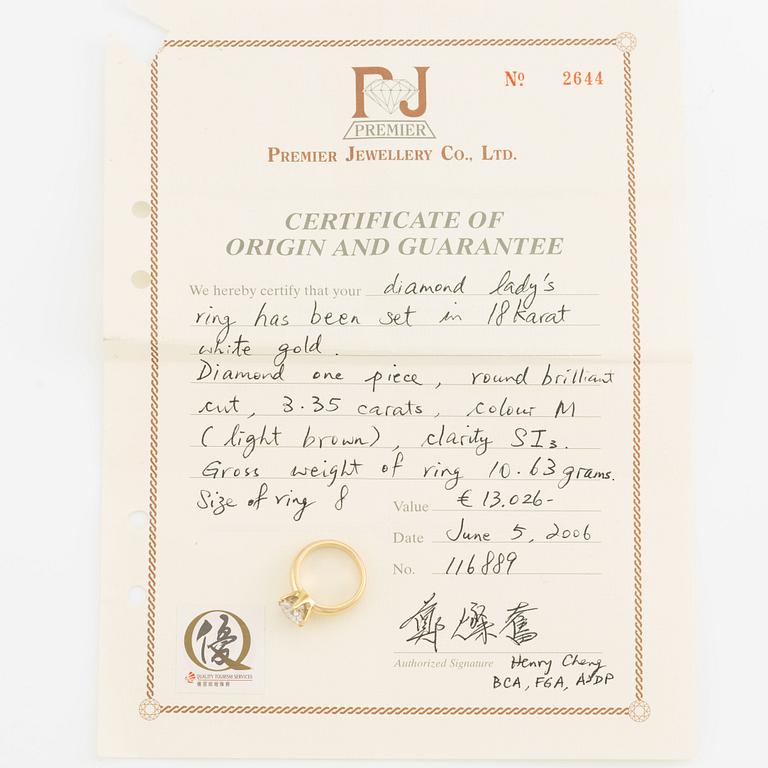 Nº 2644
PJ
PREMIER
PREMIER JEWELLERY CO., LTD.
CERTIFICATE OF
ORIGIN AND GUARANTEE
We hereby certify that your diamond lady's
ring has been set in 18 karat
white gold.
Diamond one piece, round brilliant
cut, 3.35 carats, colour M
(light brown), clarity SI3.
Gross weight of ring 10.63 grams.
Size of ring 8
Value € 13.026-
Date June 5, 2006
No. 116889
鄭燦奮
Authorized Signature Henry Cheng
BCA, FGA,
優
QUALITY TOURISM SERVICES